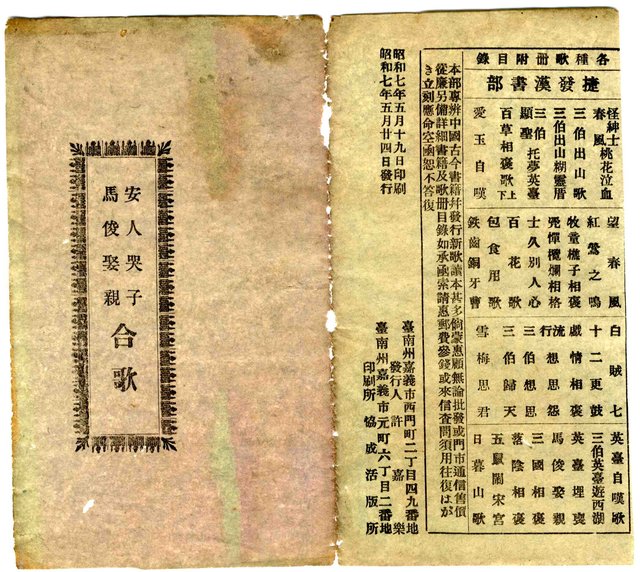 各種歌册附目錄
捷發漢書部
怪紳士
春風 桃花泣血
三伯出山歌
三伯出山糊靈厝
三伯
顯聖 托夢英臺
百草相褒歌上下
愛玉自嘆
望春風
紅鶯之鳴
牧童樵子相褒
死憚攬爛相格
士久別人心
百花歌
包食用歌
鉄齒銅牙曹
白賊七
十二更鼓
戲情相褒
流行想思怨
三伯想思
三伯歸天
雪梅思君
英臺自嘆
三伯英臺遊西湖
英臺埋喪
馬俊娶親
三國相褒
落陰相褒
五鼠鬧宋宮
日暮山歌
本部專辨中國古今書籍幷發行新歌讀本甚多倘蒙惠顧無論批發或門市通信售價
從廉另備詳細書籍及歌册目錄如承函索請惠郵費參錢或來信查問須用往復はが
き立刻應命空函恕不答復
昭和七年五月十九日印刷
昭和七年五月廿四日發行
臺南州嘉義市西門町二丁目四九番地
發行人 許嘉樂
臺南州嘉義市元町六丁目二番地
印刷所 協成活版所
安人哭子
馬俊娶親
合歌